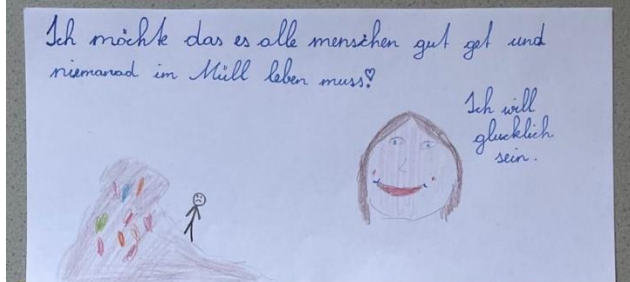 Ich möchte das es alle menschen gut get und
niemanad im Müll leben muss!
Ich will
glucklich
sein.